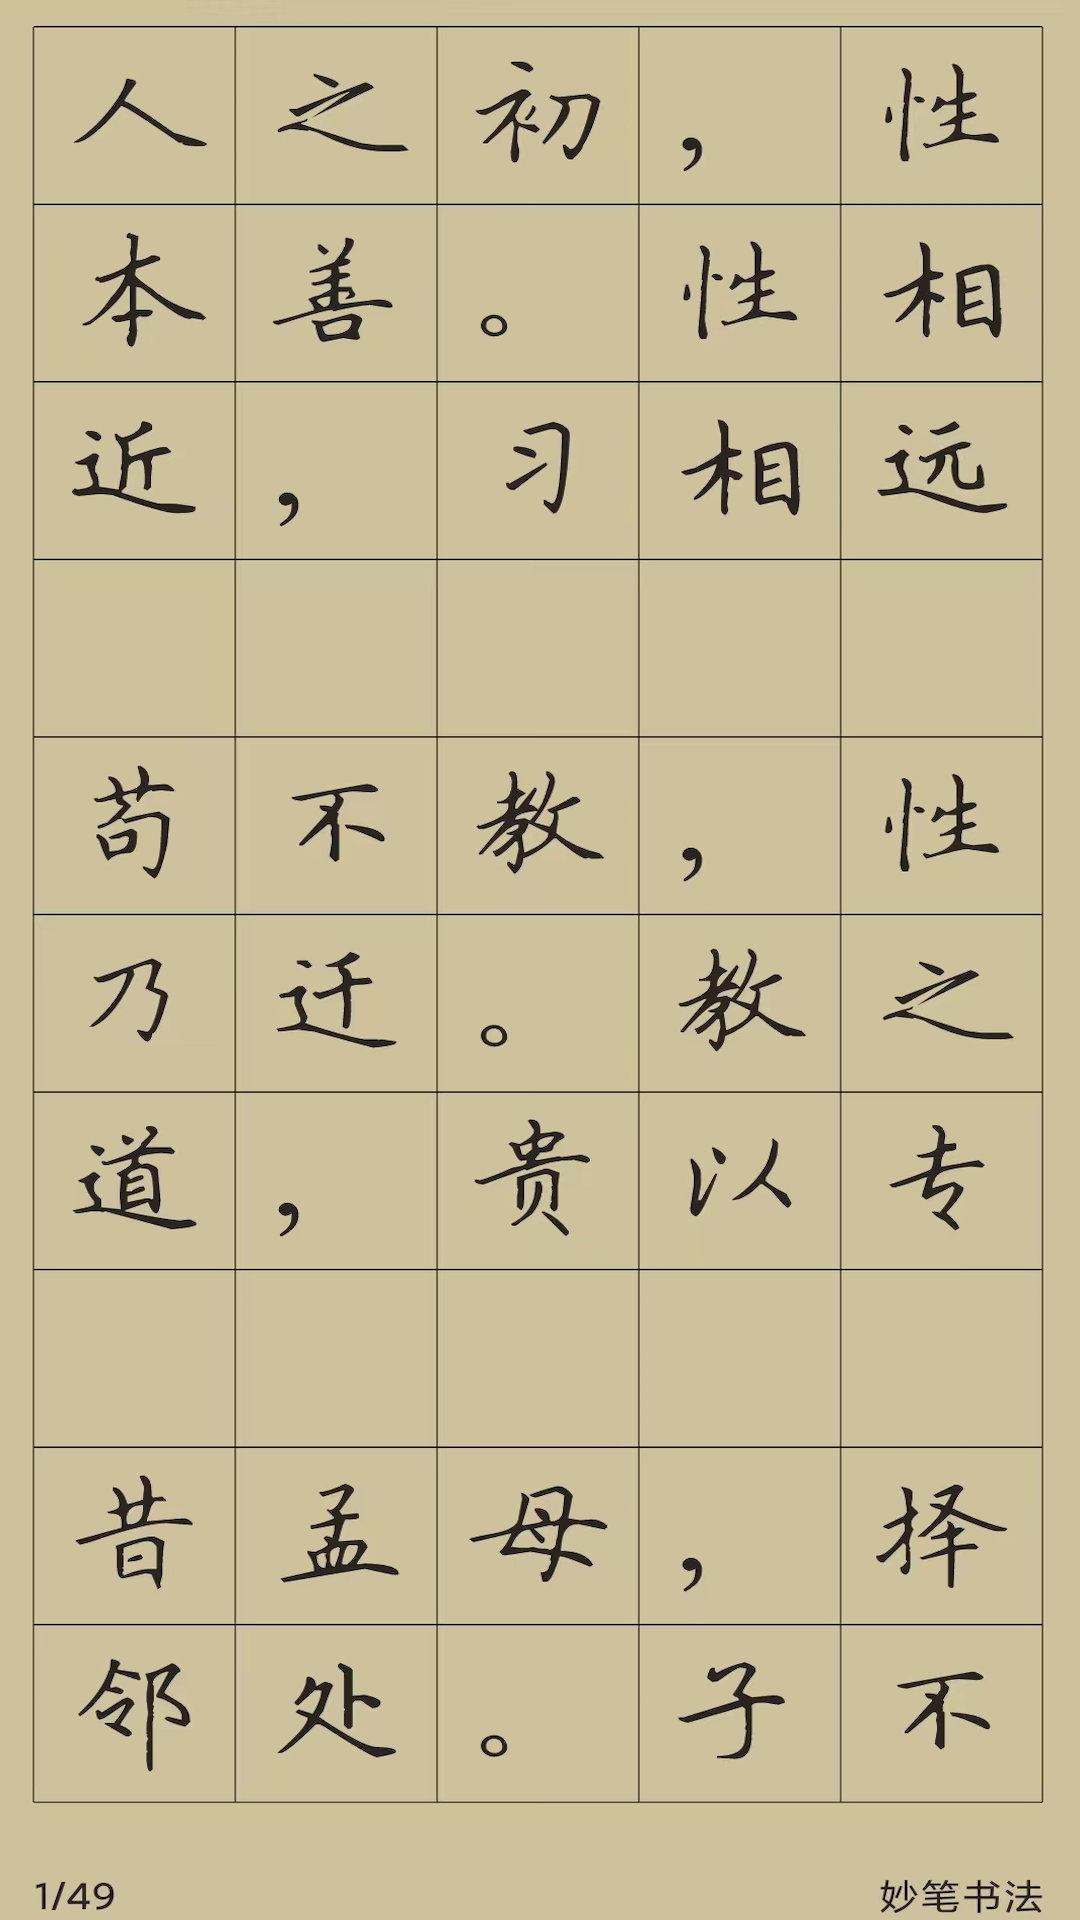 人之初，性
本善。性相
近，习相远
苟不教，性
乃迁。教之
道，贵以专
昔孟母，择
邻处。子不
1/49
妙笔书法